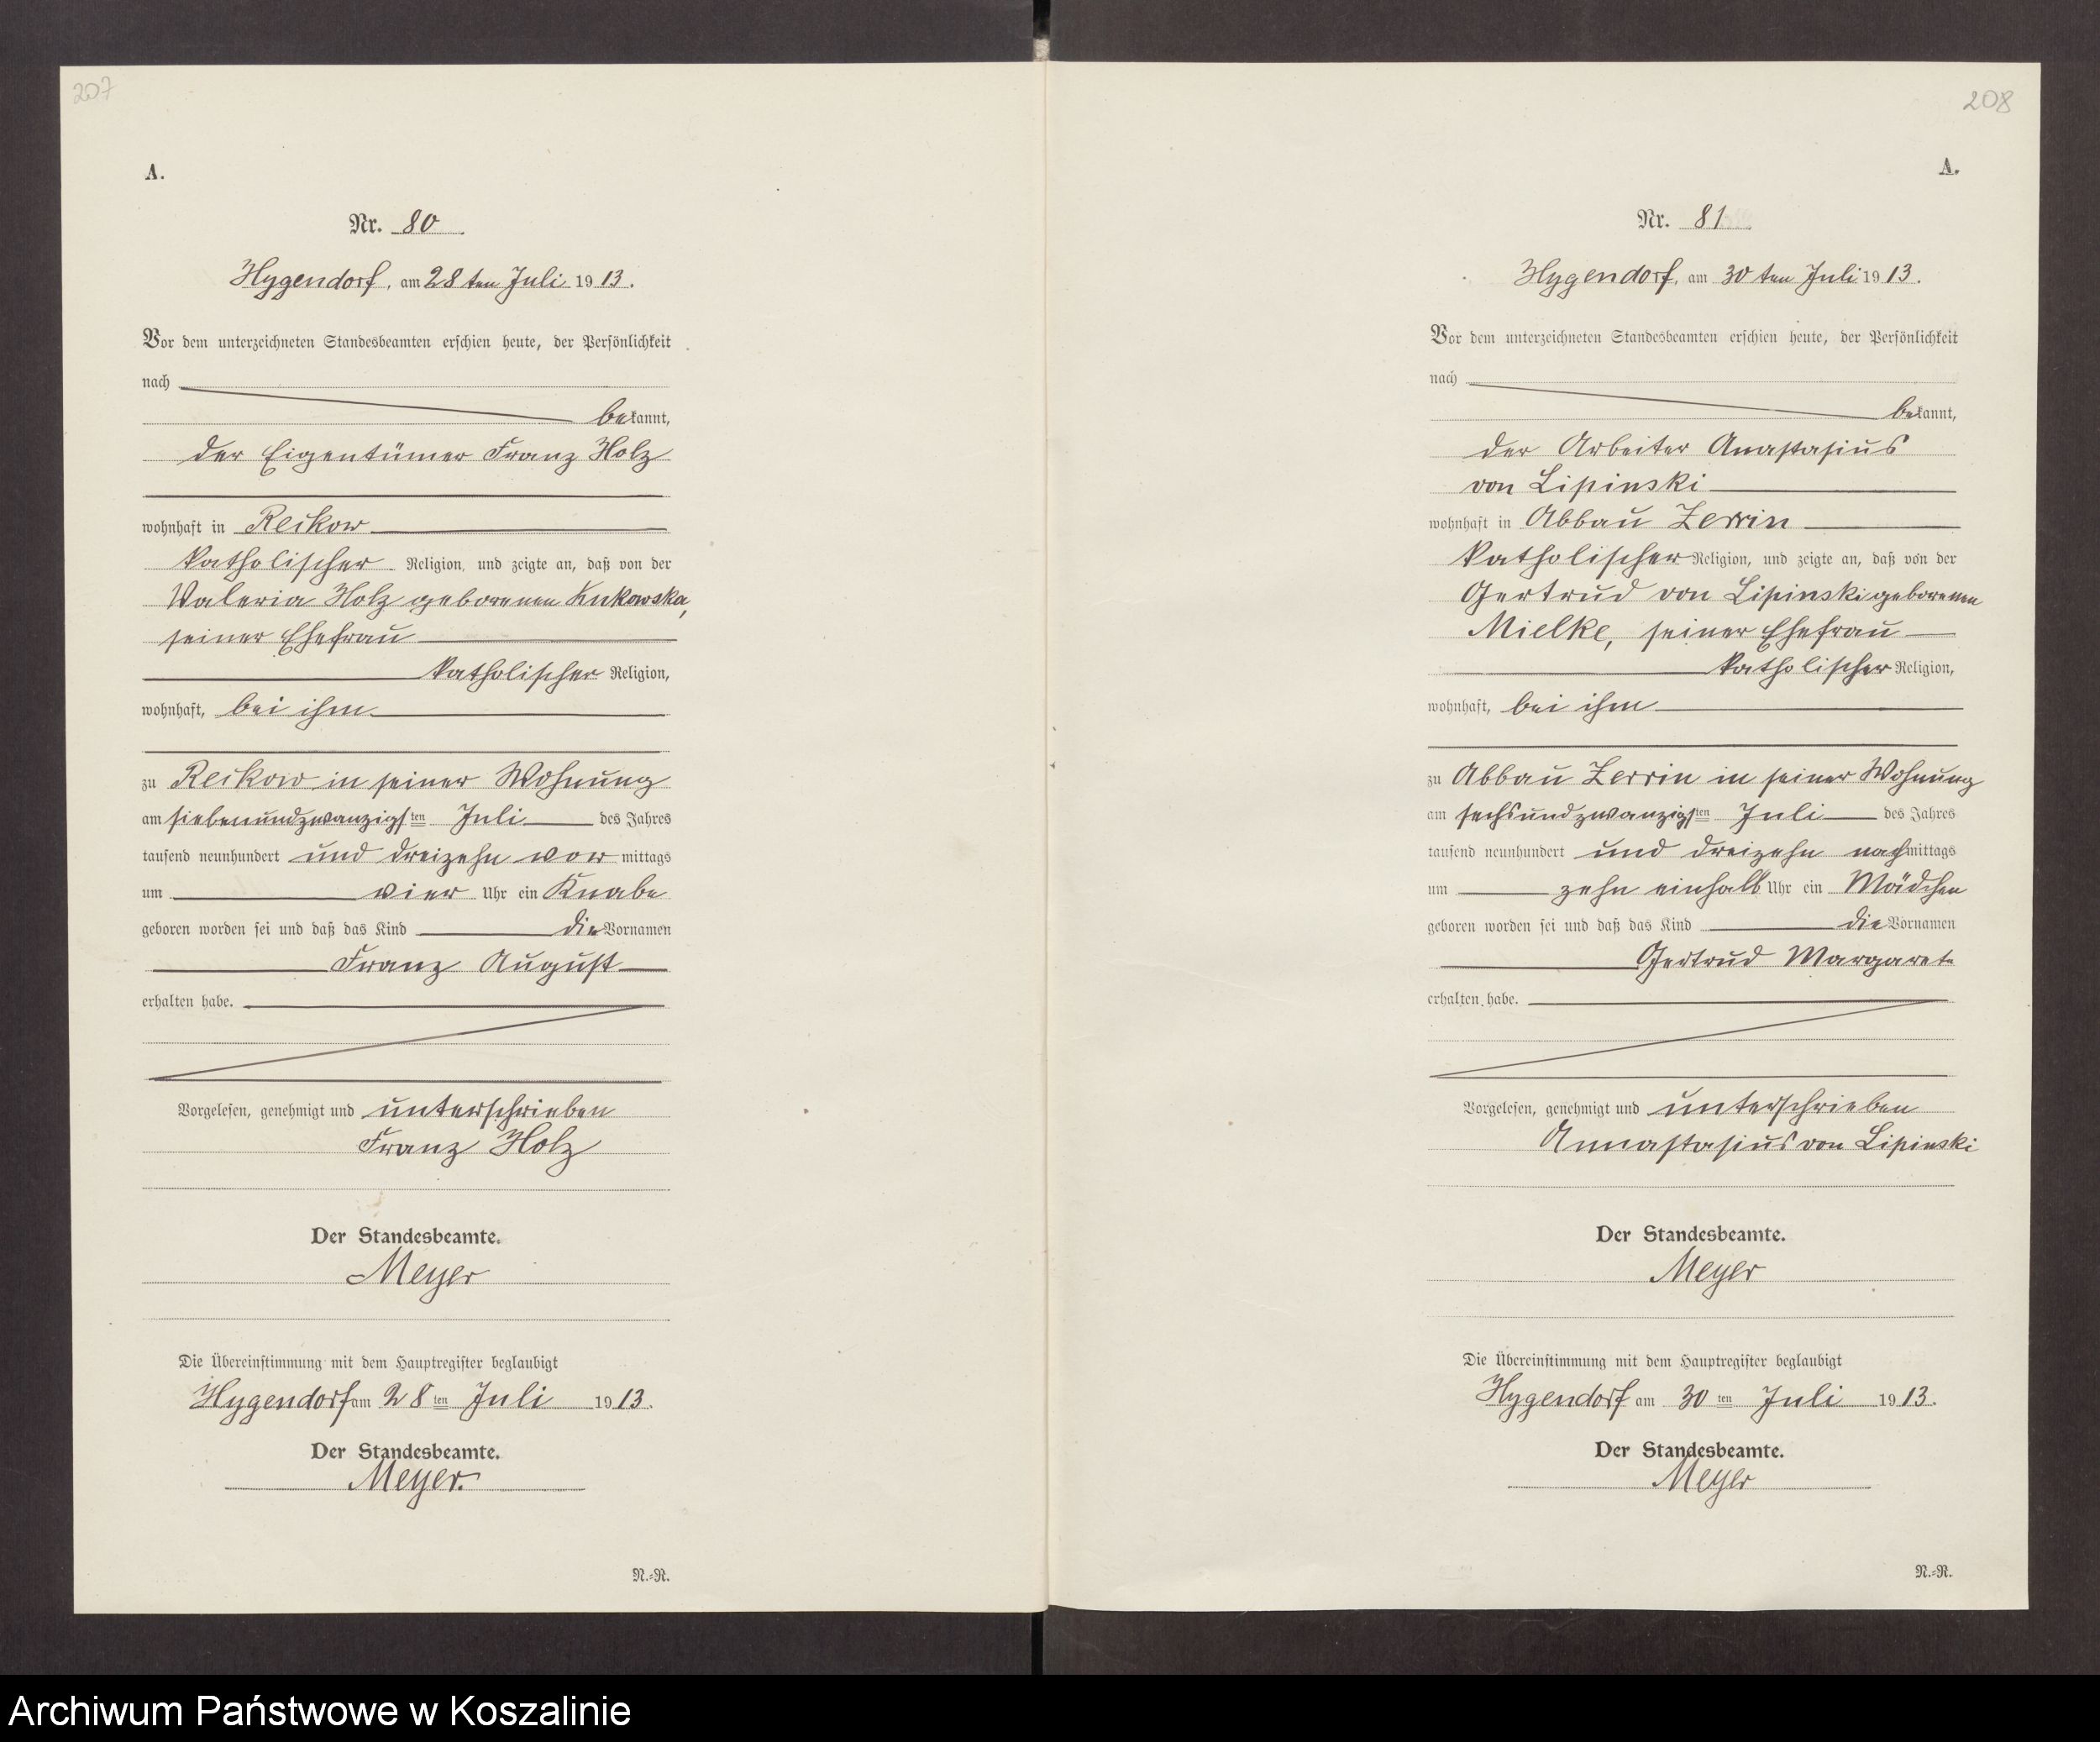 207
A.
Nr. 80.
Hygendorf, am 28 ten Juli 1913.
Vor dem unterzeichneten Standesbeamten erschien heute, der Persönlichkeit
nach
bekannt,
der Eigentümer Franz Holz
wohnhaft in Reikow
katholischer Religion, und zeigte an, daß von der
Valeria Holz geborenen Kukowska,
seiner Ehefrau
katholischer Religion,
wohnhaft, bei ihm
zu Reikow in seiner Wohnung
am siebenundzwanzigsten Juli des Jahres
tausend neunhundert und dreizehn vor mittags
um vier Uhr ein Knabe
geboren worden sei und daß das Kind die Vornamen
Franz August
erhalten habe.
Vorgelesen, genehmigt und unterschrieben
Franz Holz
Der Standesbeamte.
Meyer
Die Übereinstimmung mit dem Hauptregister beglaubigt
Hygendorf am 28 ten Juli 1913.
Der Standesbeamte.
Meyer.
N.-R.
208
A.
Nr. 81.
Hygendorf, am 30 ten Juli 1913.
Vor dem unterzeichneten Standesbeamten erschien heute, der Persönlichkeit
nach
bekannt,
der Arbeiter Anastasius
von Lipinski
wohnhaft in Abbau Zerrin
katholischer Religion, und zeigte an, daß von der
Gertrud von Lipinski geborenen
Mielke, seiner Ehefrau
katholischer Religion,
wohnhaft, bei ihm
zu Abbau Zerrin in seiner Wohnung
am sechsundzwanzigsten Juli des Jahres
tausend neunhundert und dreizehn nachmittags
um zehn einhalb Uhr ein Mädchen
geboren worden sei und daß das Kind die Vornamen
Gertrud Margarete
erhalten habe.
Vorgelesen, genehmigt und unterschrieben
Annastasius von Lipinski
Der Standesbeamte.
Meyer
Die Übereinstimmung mit dem Hauptregister beglaubigt
Hygendorf am 30 ten Juli 1913.
Der Standesbeamte.
Meyer
N.-R.
Archiwum Państwowe w Koszalinie